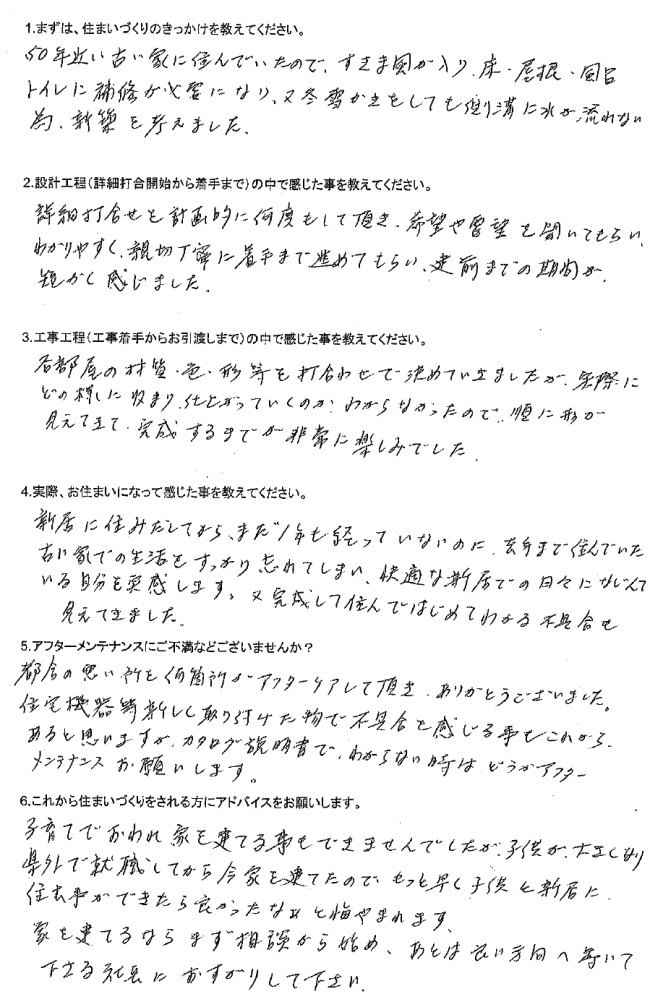 1.まずは、住まいづくりのきっかけを教えてください。
50年近い古い家に住んでいたので、すきま風が入り、床・屋根・風呂
トイレに補修が必要になり、又冬雪かきをしても側溝に水が流れない
為、新築を考えました。
2.設計工程(詳細打合開始から着手まで)の中で感じた事を教えてください。
詳細打合せを計画的に何度もして頂き、希望や要望を聞いてもらい、
わかりやすく、親切丁寧に着手まで進めてもらい、建前までの期間が、
短かく感じました。
3.工事工程(工事着手からお引渡しまで)の中で感じた事を教えてください。
各部屋の材質・色・形等を打合わせで決めていきましたが、実際に
どの様に収まり、仕上がっていくのか、わからなかったので、順に形が
見えてきて、完成するまでが非常に楽しみでした。
4.実際、お住まいになって感じた事を教えてください。
新居に住みだしてから、まだ1年も経っていないのに、去年まで住んでいた
古い家での生活をすっかり忘れてしまい、快適な新居での日々になじんで
いる自分を実感します。又完成して住んではじめてわかる不具合も
見えてきました。
5.アフターメンテナンスにご不満などございませんか?
都合の悪い所を何箇所かアフターケアして頂き、ありがとうございました。
住宅機器等新しく取り付けた物で不具合を感じる事もこれから、
あると思いますが、カタログ説明書で、わからない時はどうかアフター
メンテナンスお願いします。
6.これから住まいづくりをされる方にアドバイスをお願いします。
子育てでおわれ家を建てる事もできませんでしたが、子供が、大きくなり
県外で就職してから今家を建てたので、もっと早く子供と新居に
住む事ができたら良かったなぁと悔やまれます。
家を建てるならまず相談から始め、あとは良い方向へ導いて
下さる社長におすがりして下さい。